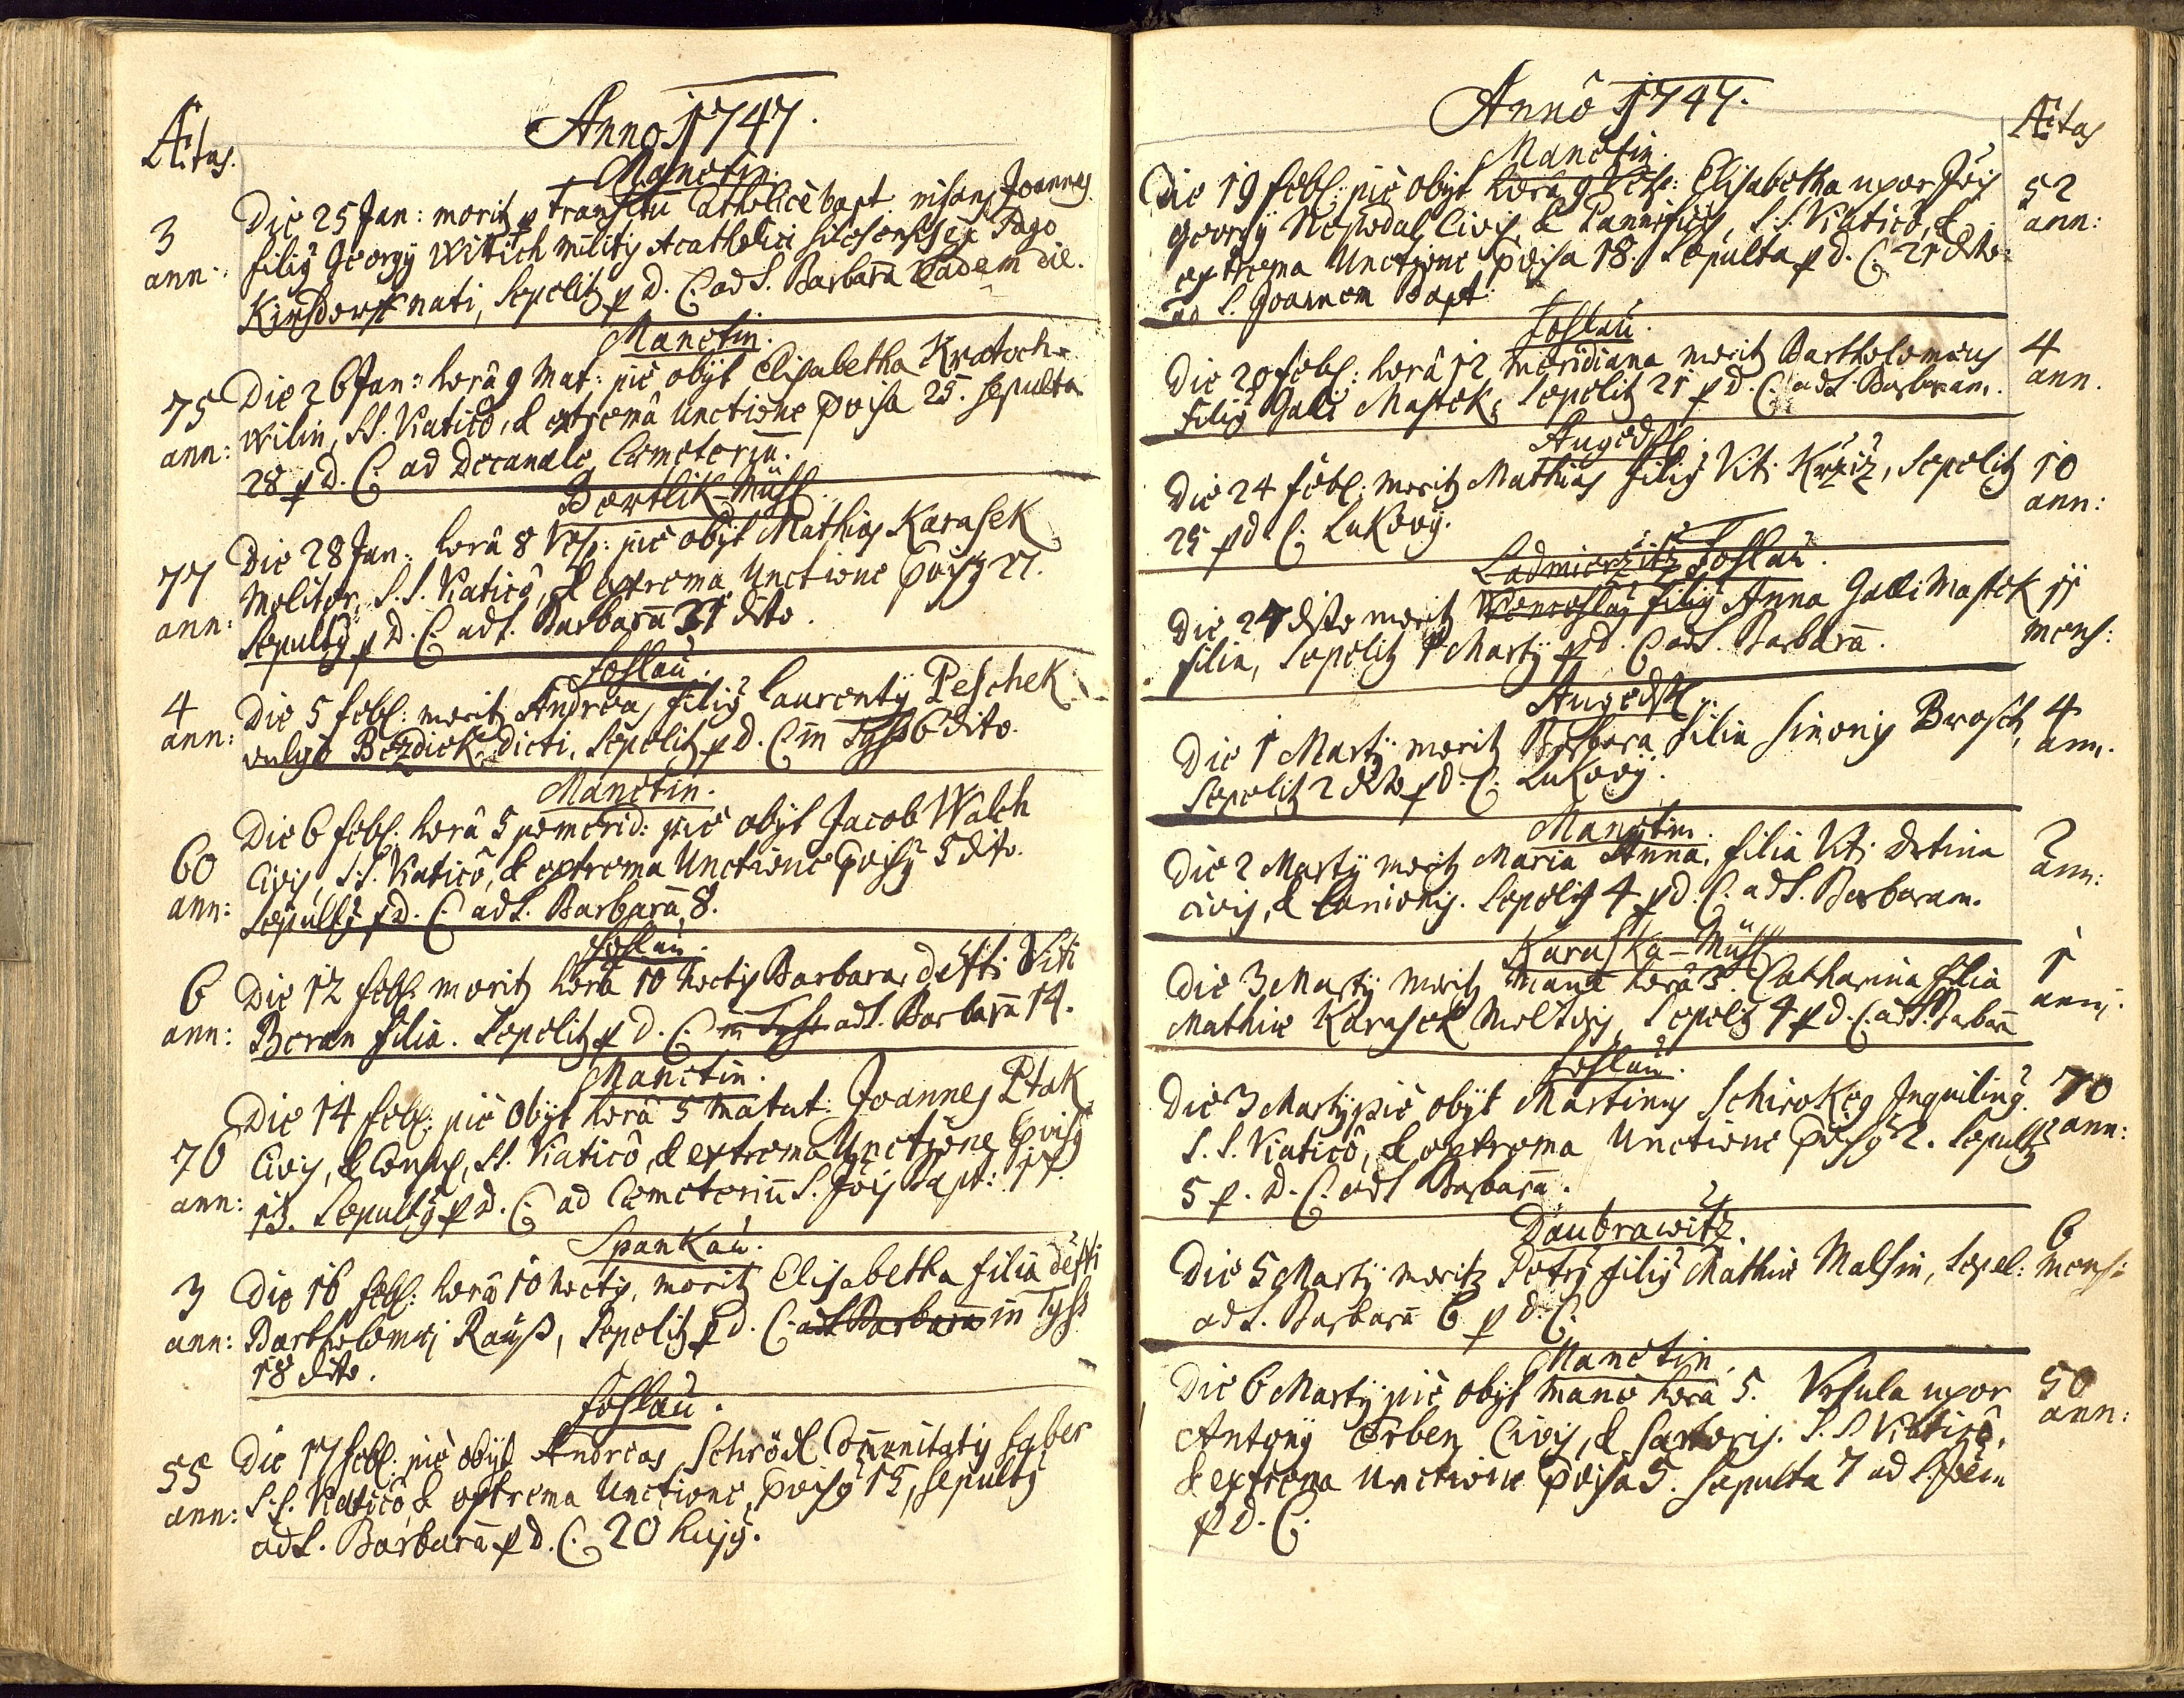 Anno 1747.
Ætas.
Manetin.
3 ann: Die 25 Jan: morit p transitu Catholicè bapt. infans Joannes
filiꝯ Georgÿ Wittich militis Acatholici Silesensis ex Pago
Kinsdorf nati, Sepelitꝛ p D. C. ad S. Barbarã Eadem die.
Manetin.
75 ann: Die 26 Jan: horâ 9 Mat: piè obÿt Elisabetha Kratoch-
wilin, SS. Viaticô, & extremâ Unctione pvisa 25. sepulta
28 p D. C. ad Decanale Cœmeteriũ.
Bertlik-Mühl.
77 ann: Die 28 Jan: horâ 8 Vesp: piè obÿt Mathias Karasek
Molitor, S.S. Viaticô, & extrema Unctione pvisꝯ 27.
Sepultꝯ p D. C. ad S. Barbarã 31 dito.
Loslau.
4 ann: Die 5 Febr: moritꝛ Andreas filiꝯ Laurentÿ Peschek
vulgò Bezdiek dicti, Sepelitꝛ p d. C. in Tyss 6 dito.
Manetin.
60 ann: Die 6 Febr: horâ 5 pomerid: piè obÿt Jacob Walch
Civis, S.S. Viaticô, & extrema Unctione pvisꝯ 5 dito.
Sepultꝯ p D. C. ad S. Barbarã 8.
Loslau.
6 ann: Die 12 Febr: morit hora 10 noctis Barbara, defti Viti
Beran filia. Sepelitꝛ p d. C. in Tyss ad S. Barbarã 14.
Manetin.
70 ann: Die 14 Febr: piè Obÿt horâ 5 matut: Joannes Ptak
Civis, & Consul, SS. Viaticô, & extrema Unctione pvisꝯ
13. Sepultꝯ p D. C. ad Cœmeteriũ S. Jõis Bapt: 17.
Spankau.
3 ann: Die 16 Febr: horâ 10 noctis, moritꝛ Elisabetha filia defti
Bartholomæi Rauß, Sepelitꝛ p d. C. ad S. Barbarã in Tyss
18 dito.
Loslau.
55 ann: Die 17 Febr: piè obÿt Andreas Schrödl Com̃unitatis faber
S.S. Viaticô & extrema Unctione, pvisꝯ 15, sepultꝯ
ad S. Barbarã p d. C. 20 hujꝯ.
Annô 1747.
Ætas
Manetin.
Die 19 Febr: piè obÿt hora 9 Vesp: Elisabetha uxor Jõis 52 ann:
Georgÿ Nepodal Civis, & Pannificis, S.S. Viaticô, &
extrema Unctione pvisa 18. Sepulta p d. C. 21 dito
ad S. Joannem Bapt:
Loslau.
Die 20 Febr: horâ 12 meridiana moritꝛ Bartholomæus 4 ann.
filiꝯ Galli Mastek, Sepelitꝛ 21 p d. C. ad S. Barbaram.
Augedtl.
Die 24 Febr: moritꝛ Mathias filiꝯ Viti Krziz, Sepelitꝛ 10 ann:
25 p d C. Lukovÿ.
Ladmierzitz Loslau.
Die 27 dito moritꝛ Wenceslaꝯ filiꝯ Anna Galli Mastek 11 mens:
filia, Sepelitꝛ 1 Martÿ p d. C. ad S. Barbarã.
Augedtl.
Die 1 Martÿ moritꝛ Barbara filia Simonis Brosch, 4 ann.
Sepelitꝛ 2 dito p d. C. Lukovÿ.
Manetin.
Die 2 Martÿ moritꝛ Maria Anna, filia Viti Drtina 2 ann:
civis, & Lanionis. Sepelitꝛ 4 p d. C. ad S. Barbaram.
Karaska-Mühl
Die 3 Martÿ moritꝛ mane hora 3. Catharina filia 1 anni.
Mathiæ Karasek Molitoris, Sepelitꝛ 4 p d. C. ad S. Barbarã
Loslau.
Die 3 Martÿ piè obÿt Martinus Schirokeg Inquilinꝯ 70 ann:
S.S. Viaticô, & extrema Unctione pvisꝯ 2. Sepultꝯ
5 p. d. C. ad S Barbarã.
Daubrawitz.
Die 5 Martÿ moritꝛ Petrꝯ filiꝯ Mathiæ Malsin, Sepel: 6 mens:
ad S. Barbarã 6 p d. C.
Manetin.
Die 6 Martÿ piè obÿt manè horâ 5. Ursula uxor 50 ann:
Antonÿ Erben, Civis, & Sartoris. S.S Viaticô,
& extrema Unctione pvisa 5. sepulta 7 ad S. Jõem
p D. C.